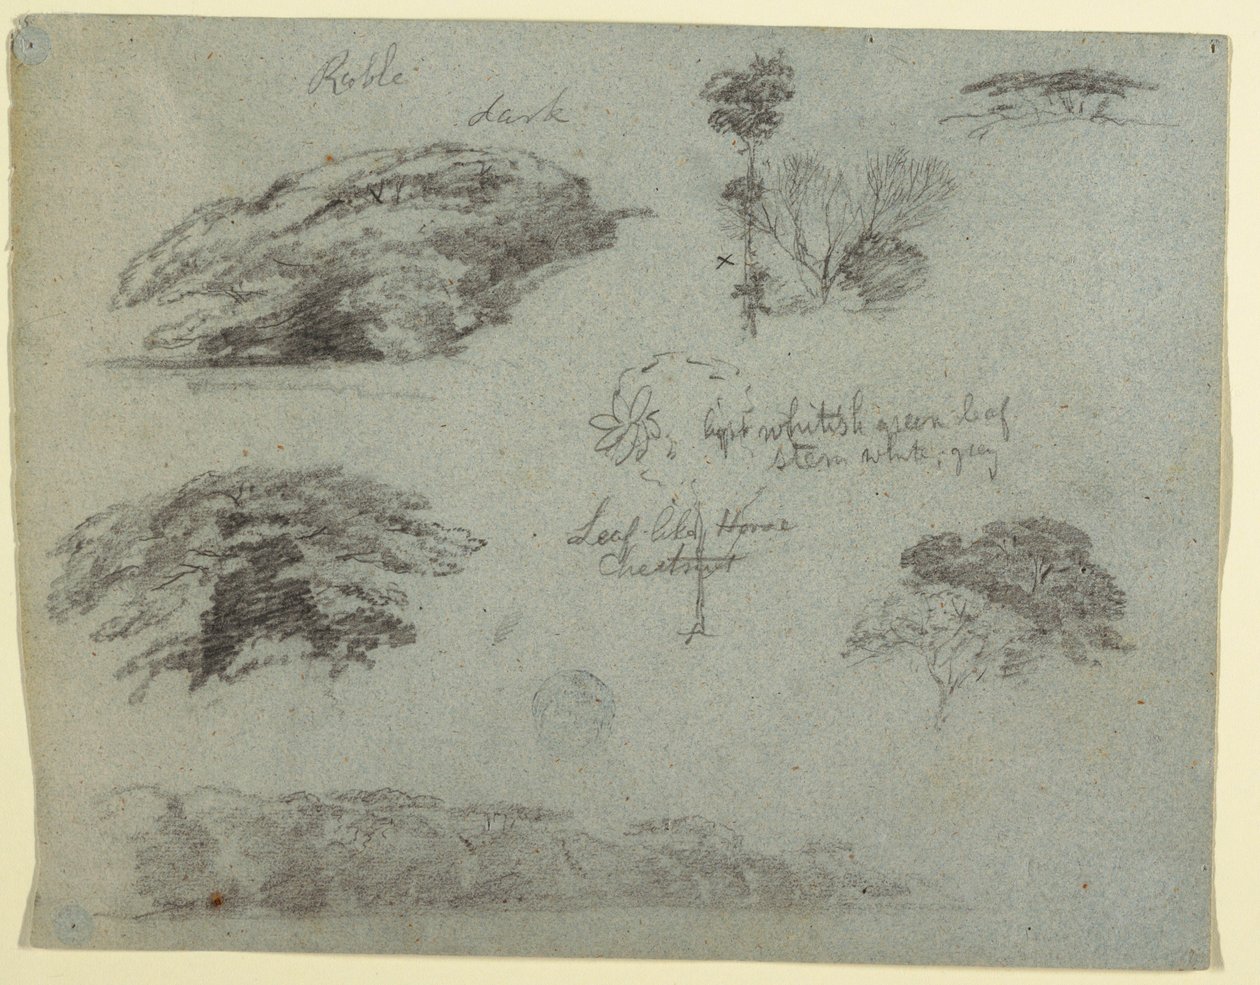 Roble
dark
light whitish green leaf
stem white, grey
Leaf like Horse
Chestnut